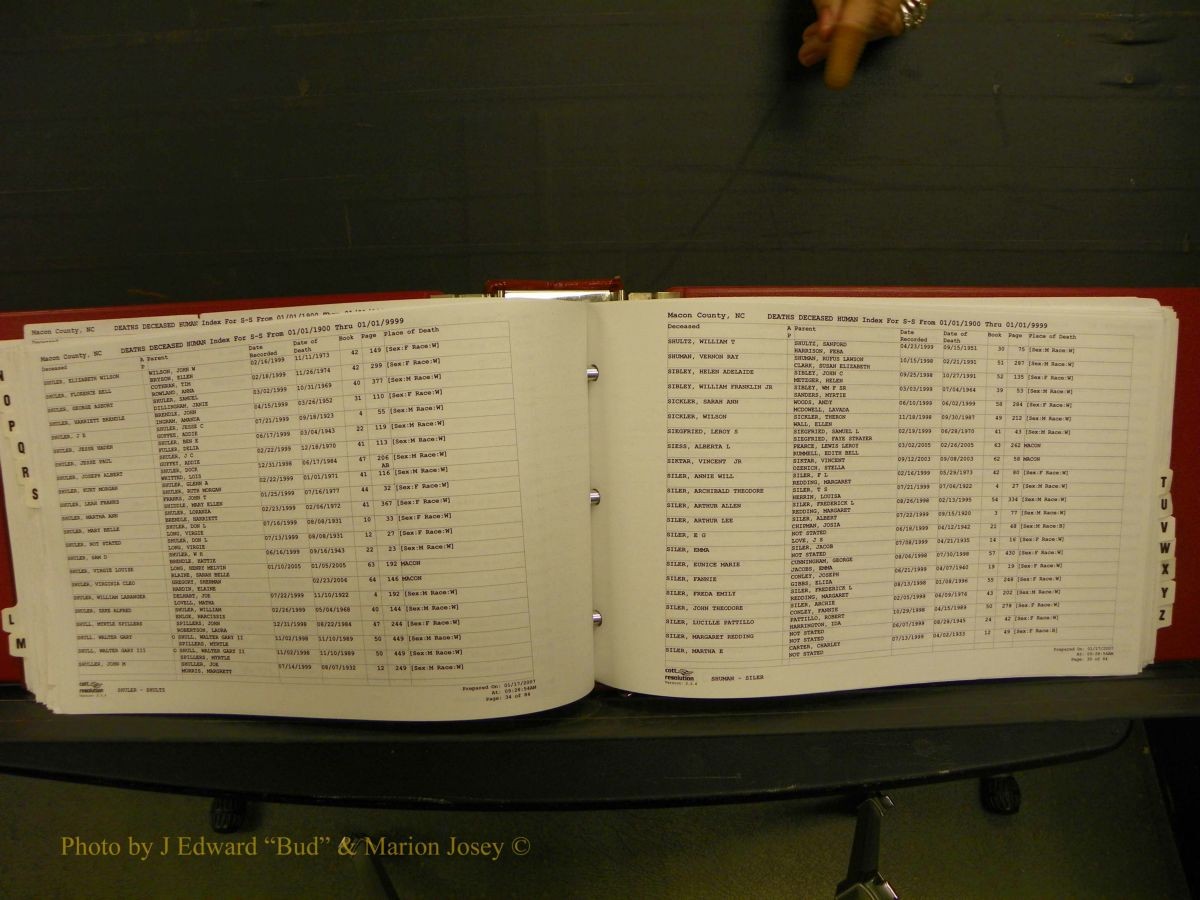 Macon County, NC DEATHS DECEASED HUMAN Index For S-S From 01/01/1900 Thru 01/01/9999
Macon County, NC DEATHS DECEASED HUMAN Index For S-S From 01/01/1900 Thru 01/01/9999
Deceased A Parent Date Recorded Date of Death Book Page Place of Death
SHULER, ELIZABETH WILSON WILSON, JOHN W 02/16/1999 11/11/1973 42 149 [Sex:F Race:W]
BRYSON, ELLEN
SHULER, FLORENCE BELL COTHRAN, TIM 02/18/1999 11/26/1974 42 299 [Sex:F Race:W]
ROWLAND, ANNA
SHULER, GEORGE ASBURY SHULER, SAMUEL 03/02/1999 10/31/1969 40 377 [Sex:M Race:W]
DILLINGHAM, JANIE
SHULER, HARRIETT BRENDLE BRENDLE, JOHN 04/15/1999 03/26/1952 31 110 [Sex:F Race:W]
INGRAM, AMANDA
SHULER, J E SHULER, JESSE C 07/21/1999 09/18/1923 4 55 [Sex:M Race:W]
GUFFEE, ADDIE
SHULER, JESSE VADEN SHULER, BEN E 06/17/1999 03/04/1943 22 119 [Sex:M Race:W]
FULLER, DELIA
SHULER, JESSE PAUL SHULER, J C 02/22/1999 12/18/1970 41 113 [Sex:M Race:W]
GUFFEY, ADDIE
SHULER, JOSEPH ALBERT SHULER, DOCK 12/31/1998 06/17/1984 47 206 [Sex:M Race:W]
WHITTED, LOIS AB
SHULER, KURT MORGAN SHULER, GLENN A 02/22/1999 01/01/1971 41 116 [Sex:M Race:W]
SHULER, RUTH MORGAN
SHULER, LEAH FRANKS FRANKS, JOHN T 01/25/1999 07/16/1977 44 32 [Sex:F Race:W]
SHULER, MARTHA ANN 02/23/1999 02/06/1972 41 367 [Sex:F Race:W]
SHULER, LORANZA
SHULER, MARY BELLE BRENDLE, HARRIETT
SHULER, DON L 07/16/1999 08/08/1931 10 33 [Sex:F Race:W]
LONG, VIRGIE
SHULER, NOT STATED SHULER, DON L 07/13/1999 08/08/1931 12 27 [Sex:F Race:W]
LONG, VIRGIE
SHULER, SAM D SHULER, W R 06/16/1999 09/16/1943 22 23 [Sex:M Race:W]
BRENDLE, HATTIE
SHULER, VIRGIE LOUISE LONG, HENRY MELVIN 01/10/2005 01/05/2005 63 192 MACON
BLAINE, SARAH BELLE
SHULER, VIRGINIA CLEO GREGORY, SHERMAN 02/23/2006 64 146 MACON
HARDIN, ELAINE
SHULER, WILLIAM LABANGER DELHART, JOE 07/22/1999 11/10/1922 4 192 [Sex:M Race:W]
LOVELL, MATHA
SHULER, ZEKE ALFRED SHULER, WILLIAM 02/26/1999 05/04/1968 40 144 [Sex:M Race:W]
ENLOE, NARCISSIS
SHULL, MYRTLE SPILLERS SPILLERS, JOHN 12/31/1998 08/22/1984 47 244 [Sex:F Race:W]
ROBERTSON, LAURA
SHULL, WALTER GARY C SHULL, WALTER GARY II 11/02/1998 11/10/1989 50 449 [Sex:M Race:W]
SPILLERS, MYRTLE
SHULL, WALTER GARY III C SHULL, WALTER GARY II 11/02/1998 11/10/1989 50 449 [Sex:M Race:W]
SPILLERS, MYRTLE
SHULLER, JOHN M SHULLER, JOE 07/14/1999 08/07/1932 12 249 [Sex:M Race:W]
MORRIS, MARGRETT
cott resolution
SHULER - SHULTS
Prepared On: 01/17/2007
At: 09:28:54AM
Page: 34 of 84
Macon County, NC DEATHS DECEASED HUMAN Index For S-S From 01/01/1900 Thru 01/01/9999
Deceased A Parent Date Recorded Date of Death Book Page Place of Death
SHULTZ, WILLIAM T SHULTZ, SANFORD 04/23/1999 09/15/1951 30 75 [Sex:M Race:W]
HARRISON, FEBA
SHUMAN, VERNON RAY SHUMAN, RUFUS LAWSON 10/15/1998 02/21/1991 51 297 [Sex:M Race:W]
CLARK, SUSAN ELIZABETH
SIBLEY, HELEN ADELAIDE SIBLEY, JOHN C 09/25/1998 10/27/1991 52 135 [Sex:F Race:W]
METZGER, HELEN
SIBLEY, WILLIAM FRANKLIN JR SIBLEY, WM F SR 03/03/1999 07/04/1964 39 53 [Sex:M Race:W]
SANDERS, MYRTIE
SICKLER, SARAH ANN WOODS, ANDY 06/10/1999 06/02/1999 58 284 [Sex:F Race:W]
MCDOWELL, LAVADA
SICKLER, WILSON SICKLER, THERON 11/18/1998 09/30/1987 49 212 [Sex:M Race:W]
WALL, ELLEN
SIEGFRIED, LEROY S SIEGFRIED, SAMUEL L 02/19/1999 06/28/1970 41 43 [Sex:M Race:W]
SIEGFRIED, FAYE STRAYER
SIESS, ALBERTA L PEARCE, LEWIS LEROY 03/02/2005 02/26/2005 63 262 MACON
RUMMELL, EDITH BELL
SIKTAR, VINCENT JR SIKTAR, VINCENT 09/12/2003 09/08/2003 62 58 MACON
OZENICH, STELLA
SILER, ANNIE WILL SILER, F L 02/16/1999 05/29/1973 42 80 [Sex:F Race:W]
REDDING, MARGARET
SILER, ARCHIBALD THEODORE SILER, T S 07/21/1999 07/06/1922 4 27 [Sex:M Race:W]
HERRIN, LOUISA
SILER, ARTHUR ALLEN SILER, FREDERICK L 08/26/1998 02/13/1995 54 334 [Sex:M Race:W]
REDDING, MARGARET
SILER, ARTHUR LEE SILER, ALBERT 07/22/1999 09/15/1920 3 77 [Sex:M Race:W]
CHIPMAN, JOSIA
SILER, E G NOT STATED 06/18/1999 04/12/1942 21 48 [Sex:M Race:B]
LOVE, J S
SILER, EMMA SILER, JACOB 07/08/1999 04/21/1935 14 16 [Sex:F Race:W]
NOT STATED
SILER, EUNICE MARIE CUNNINGHAM, GEORGE 08/06/1998 07/30/1998 57 430 [Sex:F Race:W]
JACOBS, EMMA
SILER, FANNIE CONLEY, JOSEPH 06/21/1999 04/07/1940 19 19 [Sex:F Race:W]
GIBBS, ELIZA
SILER, FREDA EMILY SILER, FREDERICK L 08/13/1998 01/08/1996 55 248 [Sex:F Race:W]
REDDING, MARGARET
SILER, JOHN THEODORE SILER, ARCHIE 02/05/1999 06/09/1976 43 202 [Sex:M Race:W]
CONLEY, FANNIE
SILER, LUCILLE PATTILLO PATTILLO, ROBERT 10/29/1998 04/15/1989 50 279 [Sex:F Race:W]
HARRINGTON, IDA
SILER, MARGARET REDDING NOT STATED 06/07/1999 08/28/1945 24 42 [Sex:F Race:W]
NOT STATED
SILER, MARTHA E CARTER, CHARLEY 07/13/1999 04/02/1933 12 49 [Sex:F Race:B]
NOT STATED
cott resolution
SHUMAN - SILER
Prepared On: 01/17/2007
At: 09:28:54AM
Page: 35 of 84
N
O
P
Q
R
S
L
M
T
U
V
W
X
Y
Z
Photo by J Edward “Bud” & Marion Josey ©